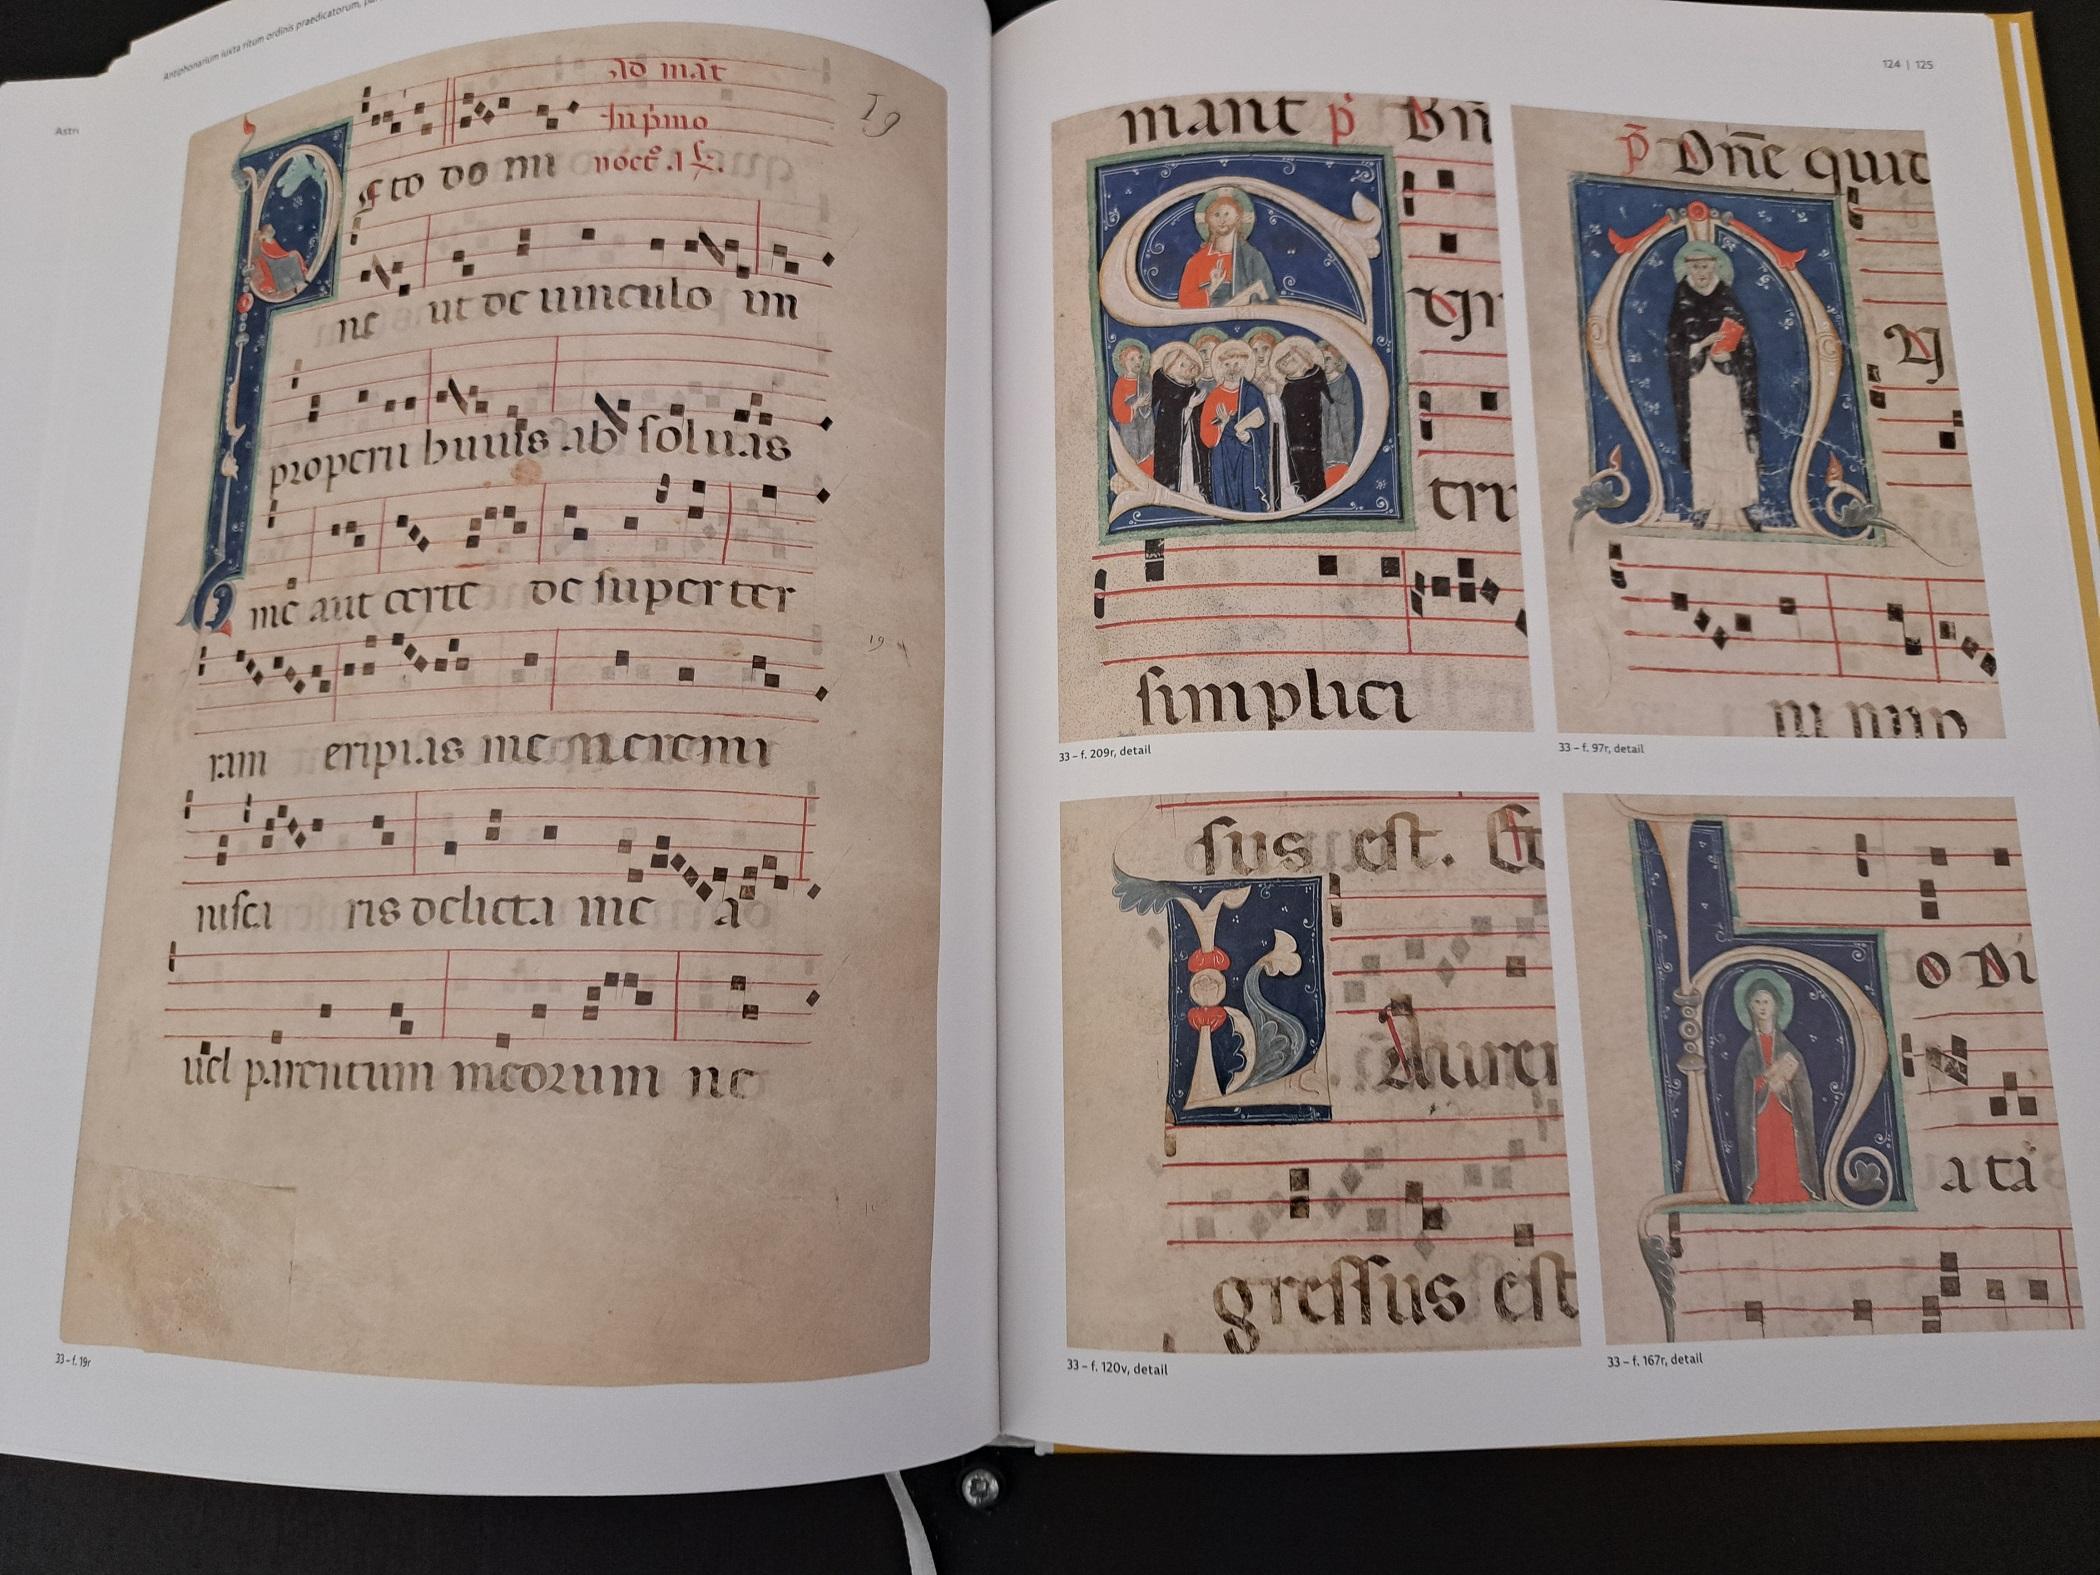 Antiphonarium iuxta ritum ordinis praedicatorum,
Astri
ad mat̄
In p̄mo
noct̄. .i.
19
to do mi
ne ut de uinculo im
properii huius ab soluas
me aut certe de super ter
ram eripias me Ne remi
nisca ris delicta me a
uel parentum meorum ne
19
33 – f. 19r
124 | 125
mant p̄ Bn̄
tri
simplici
33 – f. 209r, detail
p̄ Dn̄e quid
33 – f. 97r, detail
sus est. Et
Auren
gressus est
33 – f. 120v, detail
o Di
a ta
33 – f. 167r, detail